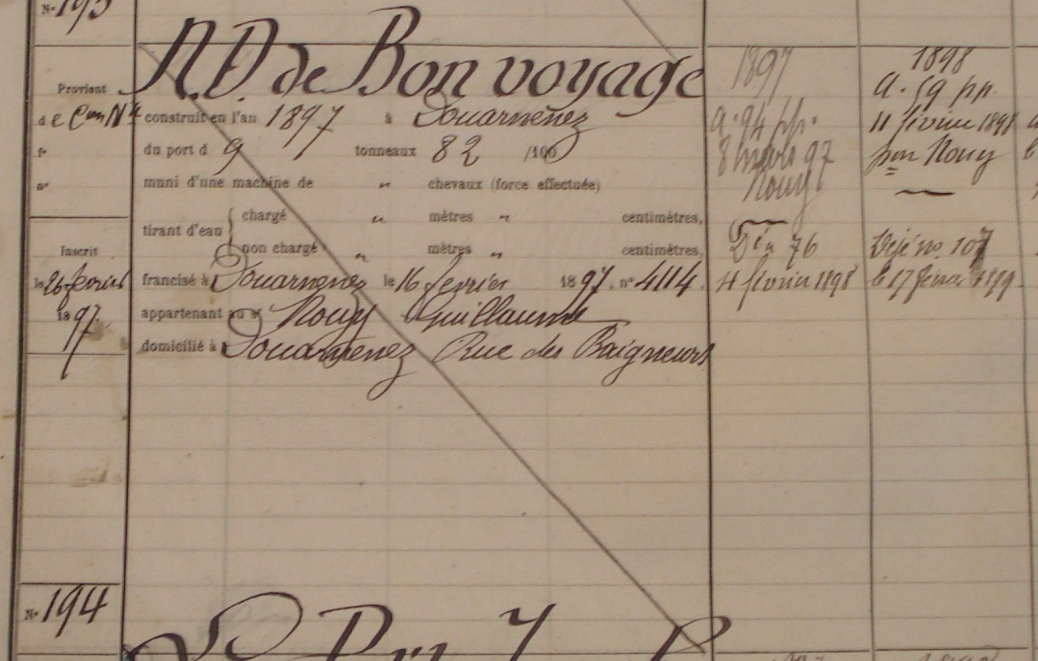 N° 193
N.D. de Bon voyage
Provient
de Con N^lle construit en l'an 1897 à Douarnenez
f° du port d 9 tonneaux 82 /100
n° muni d'une machine de " chevaux (force effectuée)
tirant d'eau { chargé " mètres " centimètres,
non chargé " mètres " centimètres,
Inscrit
le 26 février
1897
francisé à Douarnenez le 16 février 1897, n° 4114
appartenant au sr Nouy Guillaume
domicilié à Douarnenez Rue des Baigneurs
1897
a. 94 pp.
8 mars 97
Nouy
Dén 76
11 février 1898
1898
a. 59 pp.
11 février 1898
Nouy
Déj no. 107
le 17 février 1899
N° 194